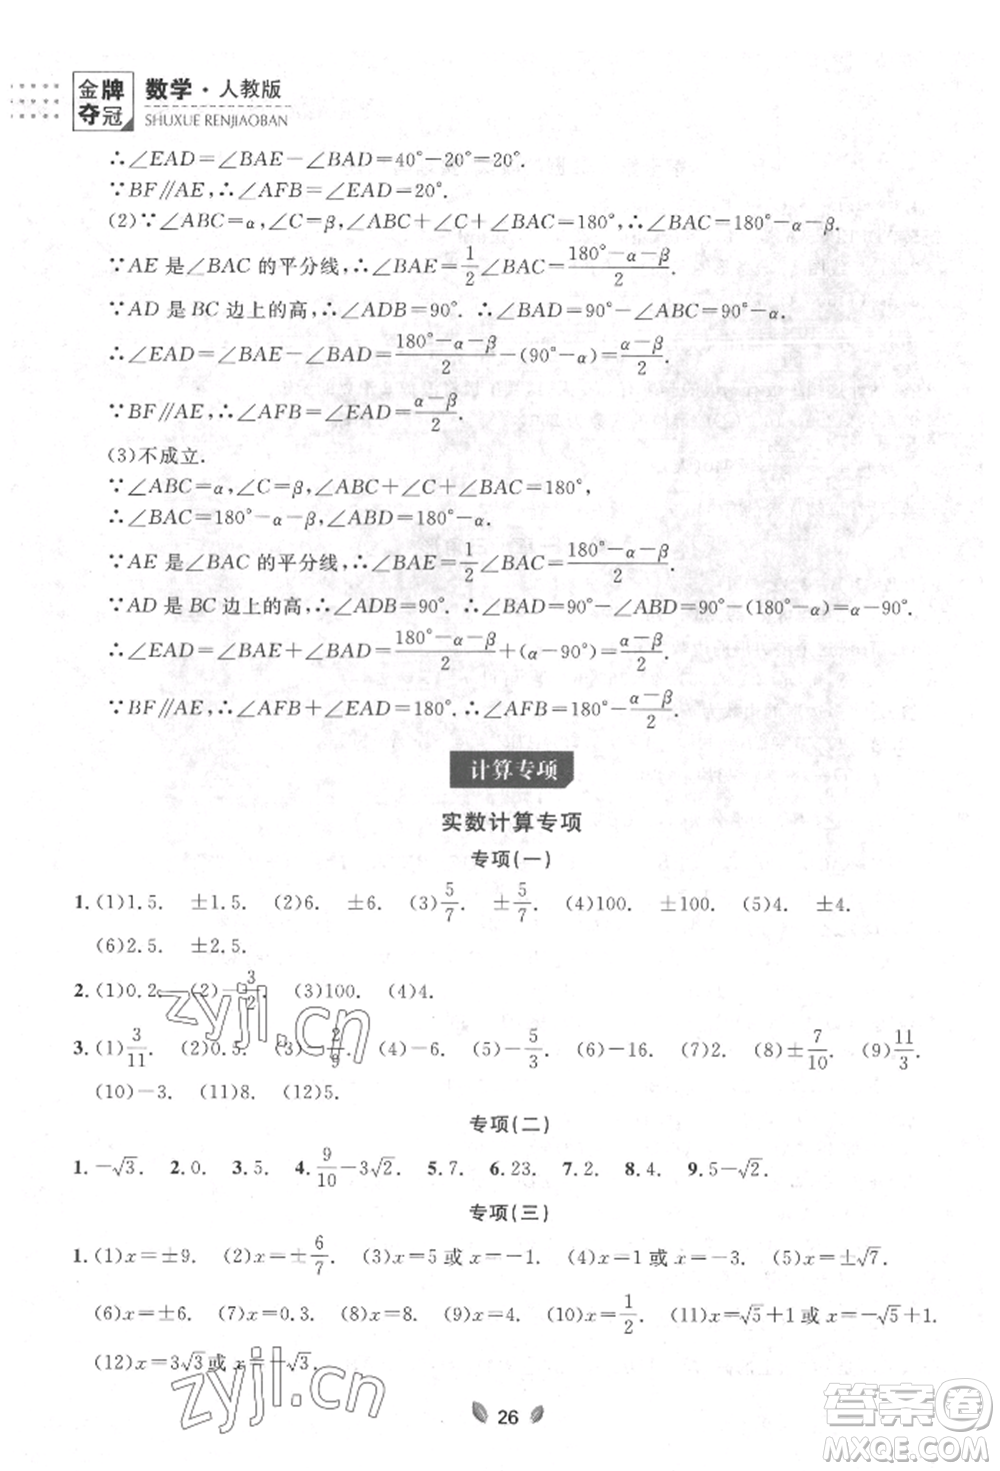 金牌夺冠 数学·人教版
SHUXUE RENJIAOBAN
∴∠EAD=∠BAE-∠BAD=40°-20°=20°.
∵BF∥AE,∴∠AFB=∠EAD=20°.
(2)∵∠ABC=α,∠C=β,∠ABC+∠C+∠BAC=180°,∴∠BAC=180°-α-β.
∵AE 是∠BAC 的平分线,∴∠BAE=1/2∠BAC=(180°-α-β)/2.
∵AD 是 BC 边上的高,∴∠ADB=90°. ∴∠BAD=90°-∠ABC=90°-α.
∴∠EAD=∠BAE-∠BAD=(180°-α-β)/2-(90°-α)=(α-β)/2.
∵BF∥AE,∴∠AFB=∠EAD=(α-β)/2.
(3)不成立.
∵∠ABC=α,∠C=β,∠ABC+∠C+∠BAC=180°,
∴∠BAC=180°-α-β,∠ABD=180°-α.
∵AE 是∠BAC 的平分线,∴∠BAE=1/2∠BAC=(180°-α-β)/2.
∵AD 是 BC 边上的高,∴∠ADB=90°.∴∠BAD=90°-∠ABD=90°-(180°-α)=α-90°.
∴∠EAD=∠BAE+∠BAD=(180°-α-β)/2+(α-90°)=(α-β)/2.
∵BF∥AE,∴∠AFB+∠EAD=180°.∴∠AFB=180°-(α-β)/2.
计算专项
实数计算专项
专项(一)
1. (1)1.5. ±1.5. (2)6. ±6. (3)5/7. ±5/7. (4)100. ±100. (5)4. ±4.
(6)2.5. ±2.5.
2. (1)0.2. (2)-3/2. (3)100. (4)4.
3. (1)3/11. (2)0.5. (3)-2/9. (4)-6. (5)-5/3. (6)-16. (7)2. (8)±7/10. (9)11/3.
(10)-3. (11)8. (12)5.
专项(二)
1.-√3. 2.0. 3.5. 4.9/10-3√2. 5.7. 6.23. 7.2. 8.4. 9.5-√2.
专项(三)
1. (1)x=±9. (2)x=±6/7. (3)x=5 或 x=-1. (4)x=1 或 x=-3. (5)x=±√7.
(6)x=±6. (7)x=0.3. (8)x=8. (9)x=4. (10)x=1/2. (11)x=√5+1 或 x=-√5+1.
(12)x=3√3 或 x=-√3.
26
zyjl.cn
zyjl.cn
答案圈
MXQE.COM